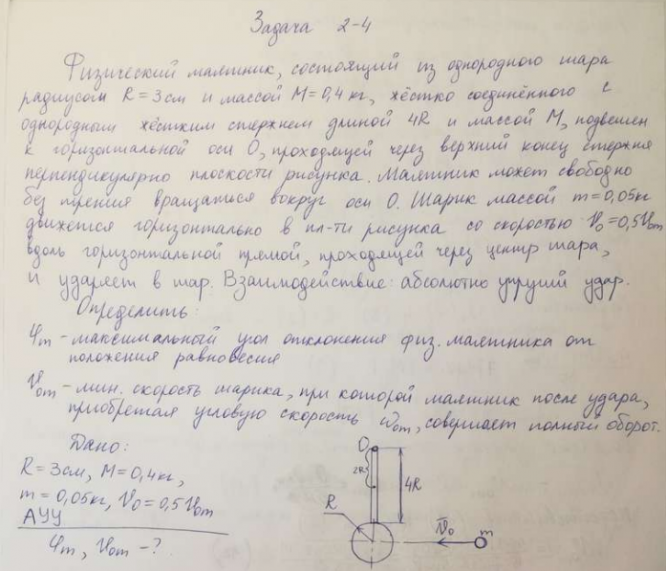 Задача 2-4
Физический маятник, состоящий из однородного шара
радиусом R=3см и массой M=0,4 кг, жёстко соединённого с
однородным жёстким стержнем длиной 4R и массой M, подвешен
к горизонтальной оси О, проходящей через верхний конец стержня
перпендикулярно плоскости рисунка. Маятник может свободно
без трения вращаться вокруг оси О. Шарик массой m=0,05кг
движется горизонтально в пл-ти рисунка со скоростью V₀=0,5V₀m
вдоль горизонтальной прямой, проходящей через центр шара,
и ударяет в шар. Взаимодействие: абсолютно упругий удар.
Определить:
φm - максимальный угол отклонения физ. маятника от
положения равновесия
V₀m - мин. скорость шарика, при которой маятник после удара,
приобретая угловую скорость ω₀m, совершает полный оборот.
Дано:
R=3см, M=0,4кг,
m=0,05кг, V₀=0,5V₀m
АУУ
φm, V₀m - ?
O
2R
4R
R
V̄₀
m